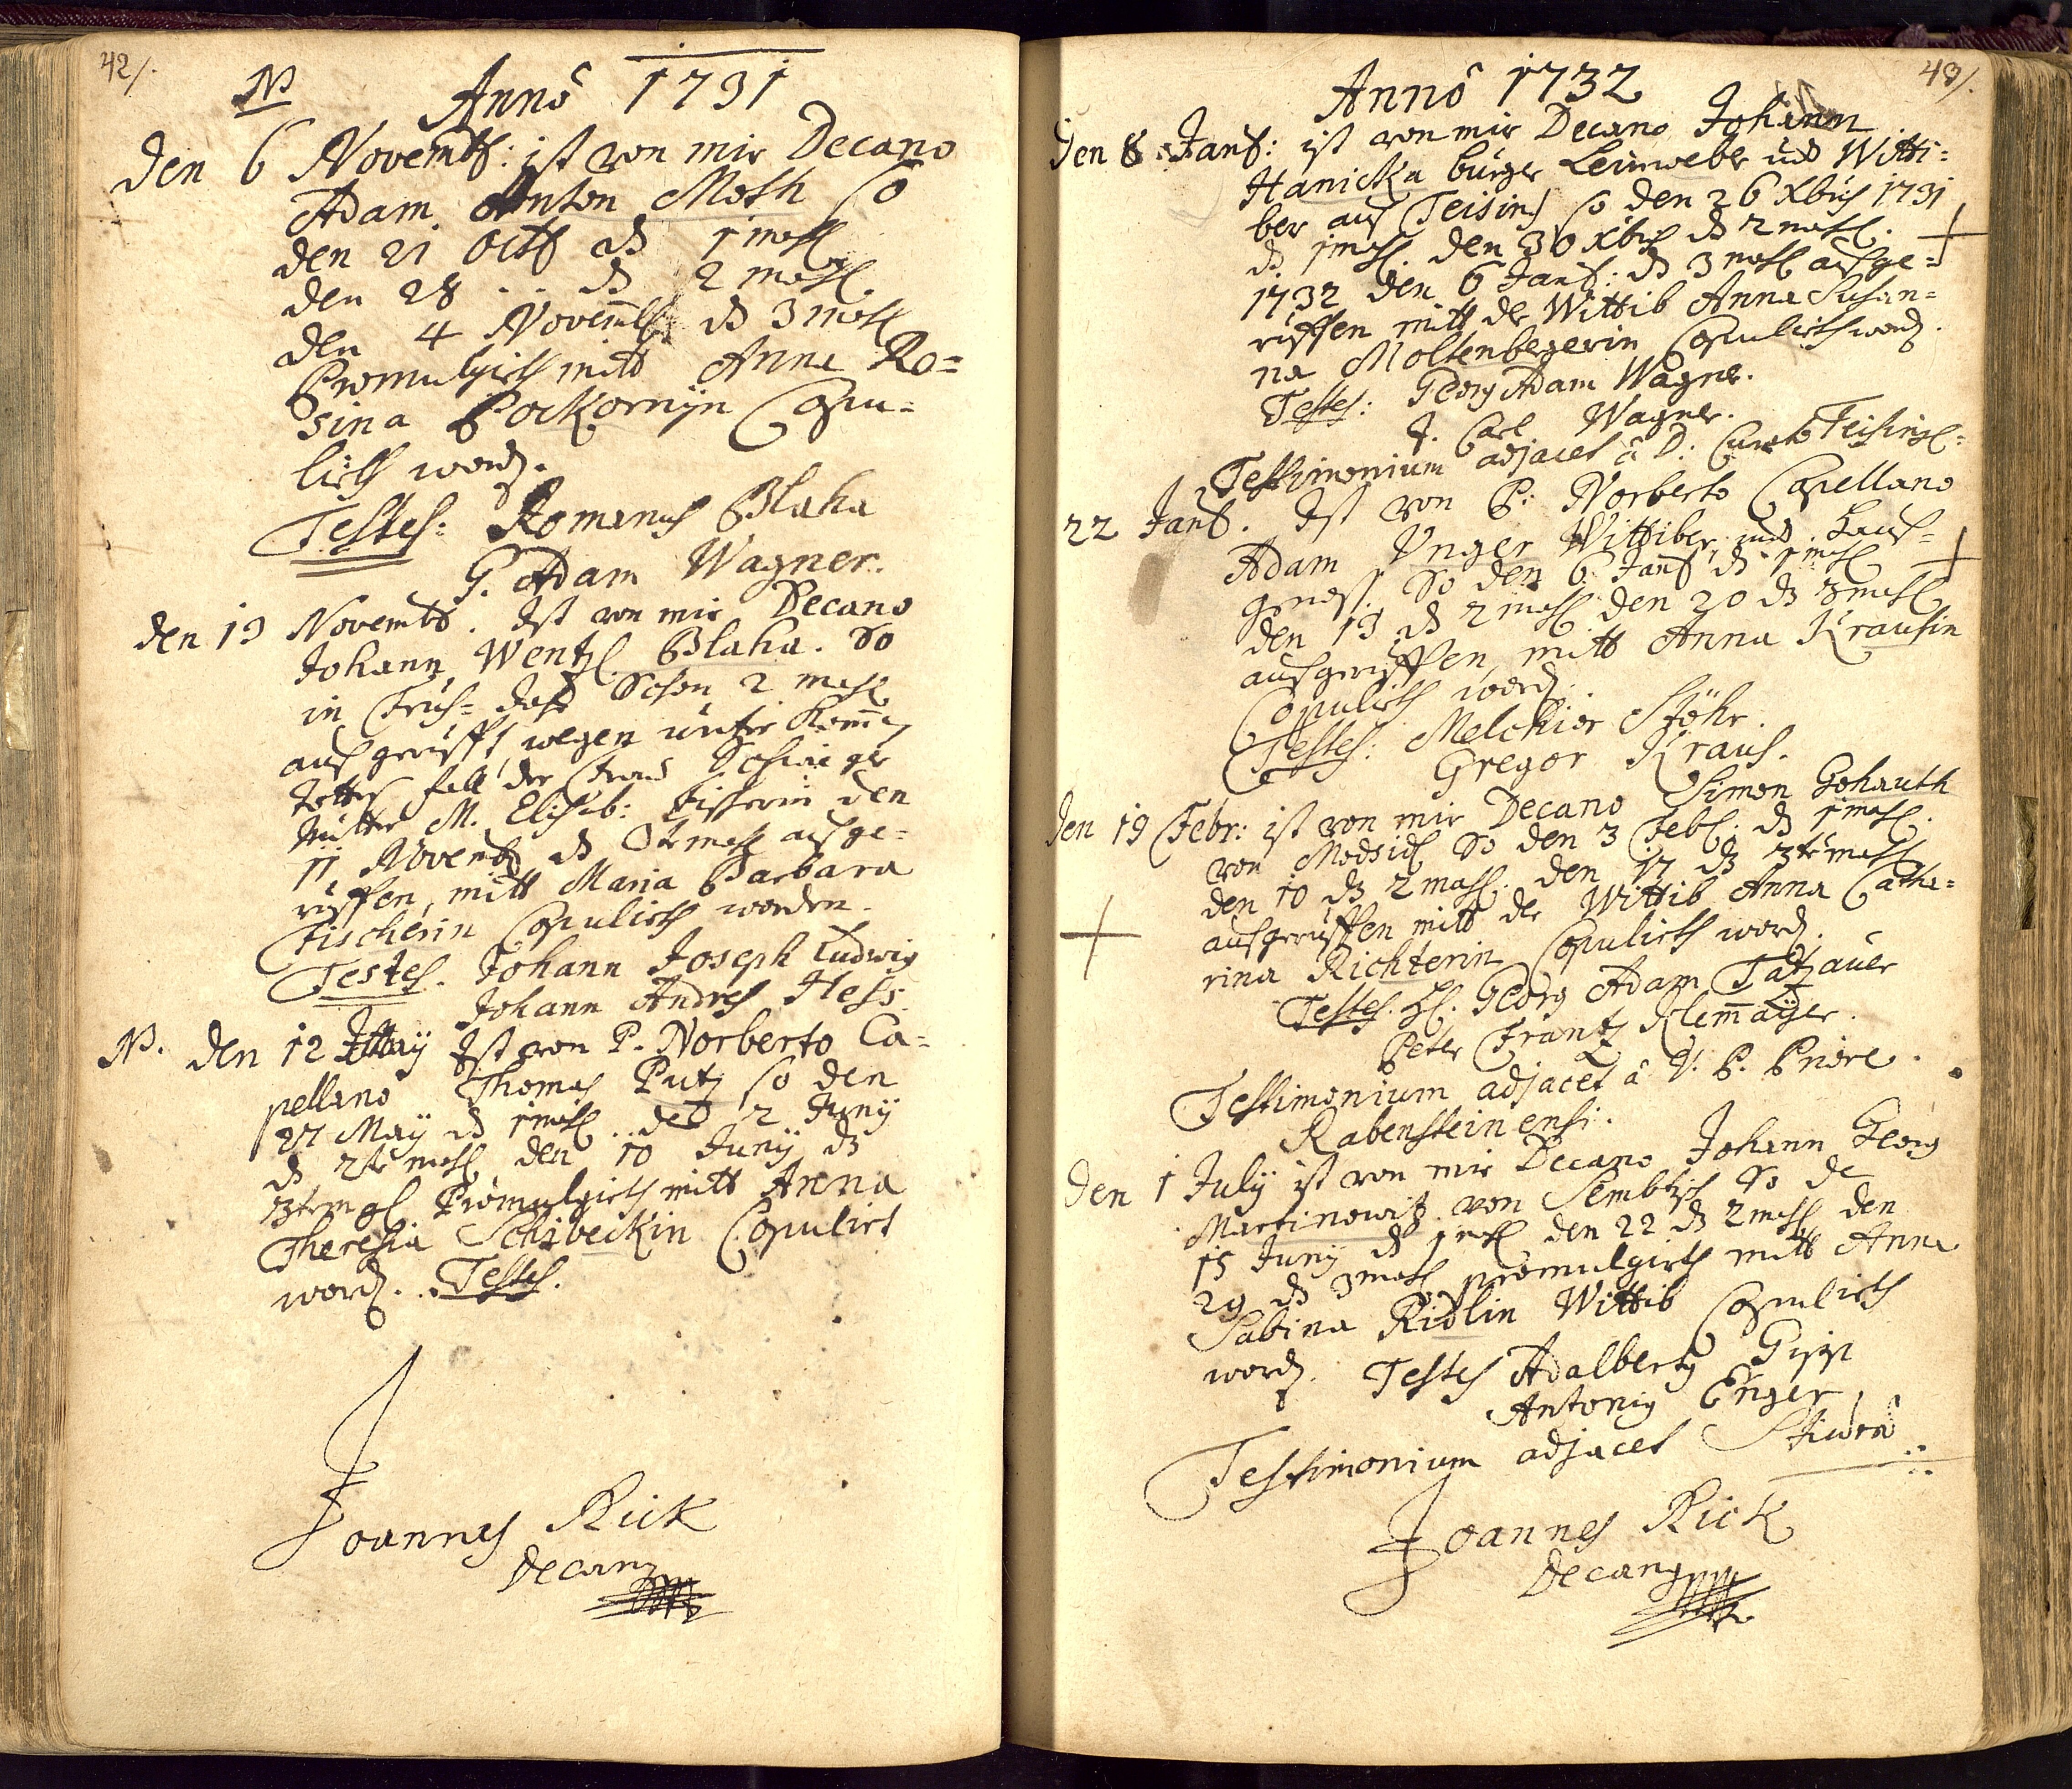 42/.
NB Anno 1731
den 6 Novembr: ist von mir Decano
Adam Anton Moth so
den 21 Octb ds 1 mahl
den 28 .. ds 2 mahl.
den 4 Novembr ds 3 mahl
Promulgirth mitt Anna Ro=
sina Pockornÿn Copu=
lirth word.
Testes: Romanus Blaha
G. Adam Wagner.
den 13 Novembr. Ist von mir Decano
Johann Wentzl Blaha. So
in Früh= schon 2 mahl
aus gerufft wegen unter
fall der Frau
Mutter M. Elisab: den
11 Novembr ds mahl ausge=
ruffen, mitt Maria Barbara
Fischerin Copulirth worden.
Testes. Johann Joseph Ludwig
Johann Andres Hess.
NB. den 12 Ist von P. Norberto Ca=
pellano Thomas Putz so den
27 Maÿ ds 1 mahl .. den 2 Junÿ
ds 2te mahl den 10 Junÿ ds
Promulgirth mitt Anna
Theresia Schibeckin Copulirt
word. .. Testes.
Joannes Rick
Decanus
43/.
Anno 1732
den 8 Janr: ist von mir Decano Johann
Hanicka burger Leinweber und Witti=
ber aus Teising so den 26 Xbris 1731
ds 1 mahl. den 30 Xbris ds 2 mahl.
1732 den 6 Janr: ds 3 mahl ausge=
ruffen mitt der Wittib Anna Susan=
na Moltenbergerin Copulirth word.
Testes: Georg Adam Wagner.
J. Carl Wagner.
Testimonium adjacet â D: Curato
22 Janr. Ist von P: Norberto Capellano
Adam Unger Wittiber und Haus=
So den 6 Janr ds 1 mahl
den 13 ds 2 mahl den 20 ds 3 mahl
ausgeruffen, mitt Anna Krausin
Copulirth word.
Testes: Melchior Stöhr.
Gregor Kraus.
den 19 Febr: ist von mir Decano Simon Gohauth
von Modsidl So den 3 Feb: ds 1 mahl.
den 10 ds 2 mahl. den 17 ds 3te mahl
ausgeruffen mitt der Wittib Anna Catha=
rina Richterin Copulirth word.
Testes. H. Georg Adam Tatzauer
Peter Frantz Klemaÿer.
Testimonium adjacet â V. P. Priore
Rabensteinensi.
den 1 Julÿ ist von mir Decano Johann Georg
Martinowitz von So de
15 Junÿ ds 1 mahl den 22 ds 2 mahl den
29 ds 3 mahl promulgirth mitt Anna
Sabina Ridlin Wittib Copulirth
word. Testes Adalbertus
Antonius Enger
Testimonium adjacet
Joannes Rick
Decanus